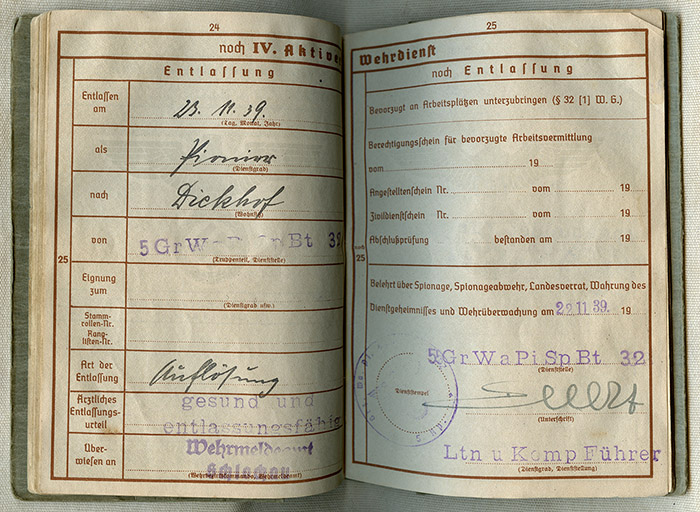 24
noch IV. Aktiver
Entlassung
Entlassen am
23. 11. 39.
(Tag, Monat, Jahr)
als
Pionier
(Dienstgrad)
nach
Dickhof
(Wohnsitz)
25
von
5 Gr W Sp Bt 32
(Truppenteil, Dienststelle)
Eignung zum
(Dienstgrad usw.)
Stamm-
rollen-Nr.
Rang-
listen-Nr.
Art der Entlassung
Auflösung
Ärztliches
Entlassungs-
urteil
gesund und
entlassungsfähig
Über-
wiesen an
Wehrmeldeamt
Schlochau
25
Wehrdienst
noch Entlassung
Bevorzugt an Arbeitsplätzen unterzubringen (§ 32 [1] W. G.)
Berechtigungsschein für bevorzugte Arbeitsvermittlung
vom 19
Angestelltenschein Nr. vom 19
Zivildienstschein Nr. vom 19
Abschlußprüfung bestanden am 19
noch
25
Belehrt über Spionage, Spionageabwehr, Landesverrat, Wahrung des
Dienstgeheimnisses und Wehrüberwachung am 22 11 39. 19
5GrWaPiSpBt 32
(Dienststelle)
Dienststempel
(Unterschrift)
Ltn u Komp Führer
(Dienstgrad, Dienststellung)